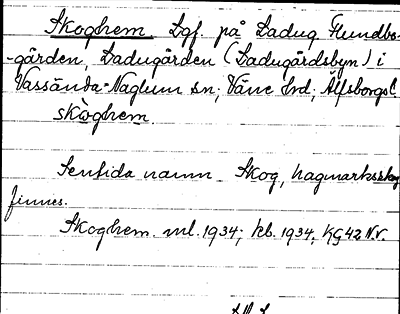 Skoghem. Lgf. på Ladug Flundbo-
-gården, Ladugården (Ladugårdsbyn) i
Vassända-Naglum sn; Väne hd; Älfsborgs l.
skòghem
Sentida namn. Skog, hagmarksskog
finnes.
Skoghem. ml. 1934; kb. 1934, KG42 N.V.